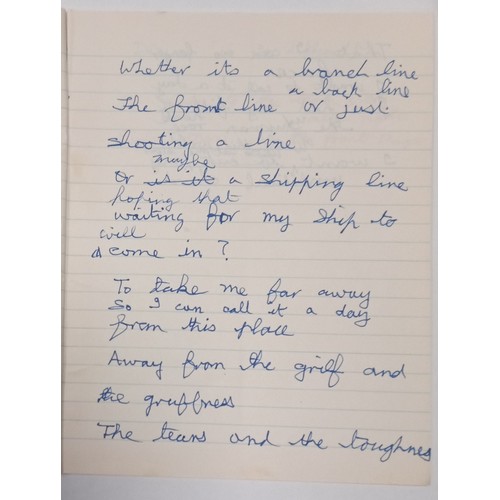 Whether its a branch line
a back line
The front line or just
shooting a line
maybe
Or is it a shipping line
hoping that
waiting for my ship to
will
come in?
To take me far away
So I can call it a day
from this place
Away from the grief and
the gruffness
The tears and the toughnes